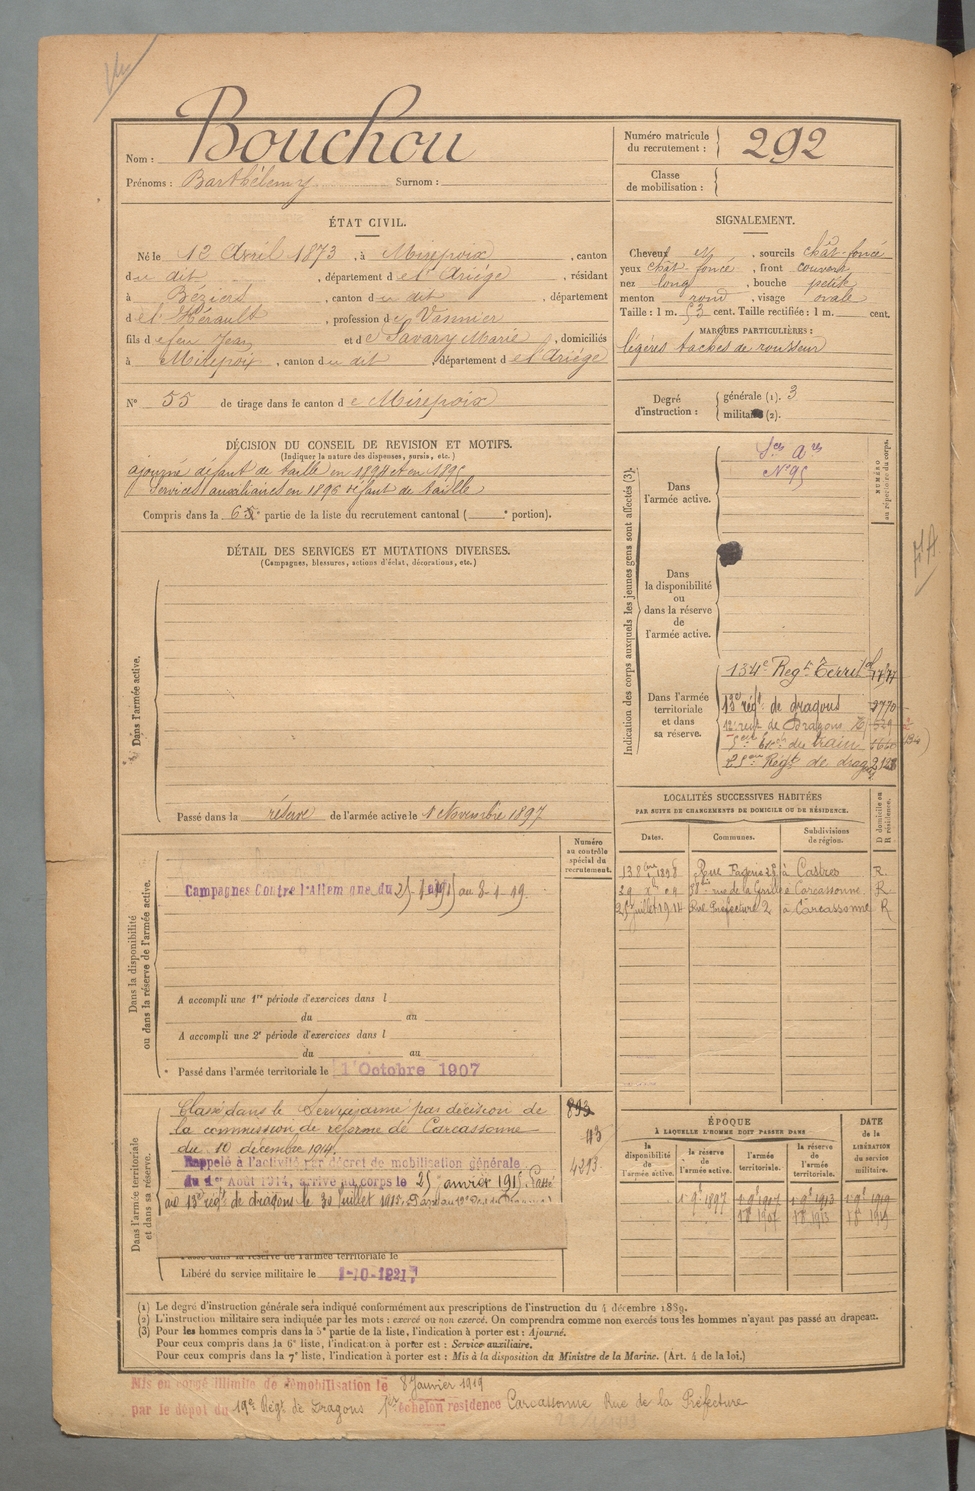 Nom : Bouchou
Prénoms : Barthélemy Surnom :
Numéro matricule du recrutement : 292
Classe de mobilisation :
ÉTAT CIVIL.
Né le 12 Avril 1873, à Mirepoix, canton
du dit, département de l'Ariége, résidant
à Béziers, canton du dit, département
de l'Hérault, profession de Vannier
fils de feu Jean et de Savary Marie, domiciliés
à Mirepoix, canton du dit, département de l'Ariége
N° 55 de tirage dans le canton de Mirepoix
SIGNALEMENT.
Cheveux N, sourcils chât-foncé
yeux chât-foncé, front couvert
nez long, bouche petite
menton rond, visage ovale
Taille : 1 m. 53 cent. Taille rectifiée : 1 m. cent.
MARQUES PARTICULIÈRES :
légères taches de rousseur
Degré d'instruction : générale (1). 3
militaire (2).
DÉCISION DU CONSEIL DE REVISION ET MOTIFS.
(Indiquer la nature des dispenses, sursis, etc.)
ajourné défaut de taille en 1894 et en 1895
Services auxiliaires en 1896 défaut de taille
Compris dans la 6e partie de la liste du recrutement cantonal ( e portion).
DÉTAIL DES SERVICES ET MUTATIONS DIVERSES.
(Campagnes, blessures, actions d'éclat, décorations, etc.)
Dans l'armée active.
Passé dans la réserve de l'armée active le 1 Novembre 1897
Indication des corps auxquels les jeunes gens sont affectés (3).
NUMÉRO au répertoire du corps.
Dans l'armée active.
N° 95
Dans la disponibilité ou dans la réserve de l'armée active.
Dans l'armée territoriale et dans sa réserve.
134e Regt Territ
13e régt de dragons
de Dragons
du train
Regt de drag
FA
Dans la disponibilité ou dans la réserve de l'armée active.
Numéro au contrôle spécial du recrutement.
Campagnes Contre l'Allemagne du au 8-1-19.
A accompli une 1re période d'exercices dans l
du au
A accompli une 2e période d'exercices dans l
du au
Passé dans l'armée territoriale le 1 Octobre 1907
LOCALITÉS SUCCESSIVES HABITÉES
PAR SUITE DE CHANGEMENTS DE DOMICILE OU DE RÉSIDENCE.
Dates. Communes. Subdivisions de région. D domicile ou R résidence.
1898 Rue à Castres R
rue de la Carcassonne. R
25 juillet 1914 Rue Préfecture 2 à Carcassonne R
Dans l'armée territoriale et dans sa réserve.
Classé dans le Service armé par décision de
la commission de réforme de Carcassonne
du 10 décembre 1914.
Rappelé à l'activité par décret de mobilisation générale
du 1er Août 1914, arrivé au corps le 25 janvier 1915. Passé
au 13e régt de dragons le 30 juillet 1915.
893
113
4213
Passé dans la réserve de l'armée territoriale le
Libéré du service militaire le 1-10-1921
ÉPOQUE
À LAQUELLE L'HOMME DOIT PASSER DANS
la disponibilité de l'armée active. la réserve de l'armée active. l'armée territoriale. la réserve de l'armée territoriale.
DATE de la LIBÉRATION du service militaire.
(1) Le degré d'instruction générale sera indiqué conformément aux prescriptions de l'instruction du 4 décembre 1889.
(2) L'instruction militaire sera indiquée par les mots : exercé ou non exercé. On comprendra comme non exercés tous les hommes n'ayant pas passé au drapeau.
(3) Pour les hommes compris dans la 5e partie de la liste, l'indication à porter est : Ajourné.
Pour ceux compris dans la 6e liste, l'indication à porter est : Service auxiliaire.
Pour ceux compris dans la 7e liste, l'indication à porter est : Mis à la disposition du Ministre de la Marine. (Art. 4 de la loi.)
Mis en congé illimité de démobilisation le 8 Janvier 1919
par le dépôt du 19e Régt de Dragons échelon résidence Carcassonne Rue de la Préfecture